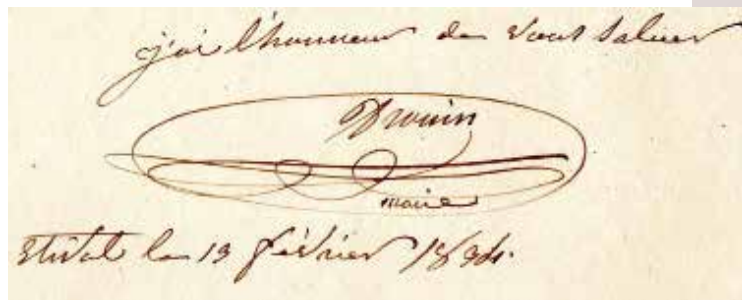 j'ai l'honneur de vous saluer
Drouin
maire
Etival le 13 février 1834.